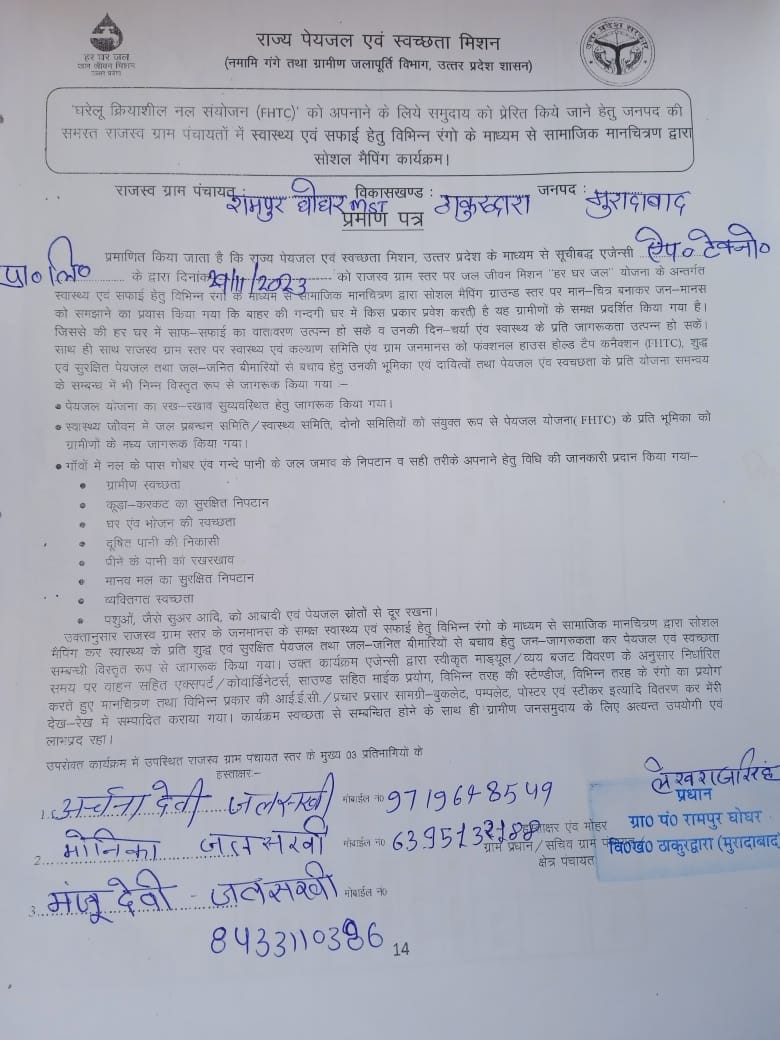 हर घर जल
जल जीवन मिशन
उत्तर प्रदेश
राज्य पेयजल एवं स्वच्छता मिशन
(नमामि गंगे तथा ग्रामीण जलापूर्ति विभाग, उत्तर प्रदेश शासन)
उत्तर प्रदेश सरकार
'घरेलू क्रियाशील नल संयोजन (FHTC)' को अपनाने के लिये समुदाय को प्रेरित किये जाने हेतु जनपद की
समस्त राजस्व ग्राम पंचायतों में स्वास्थ्य एवं सफाई हेतु विभिन्न रंगो के माध्यम से सामाजिक मानचित्रण द्वारा
सोशल मैपिंग कार्यक्रम।
राजस्व ग्राम पंचायत रामपुर घोघर MST विकासखण्ड : ठाकुरद्वारा जनपद : मुरादाबाद
प्रमाण पत्र
प्रमाणित किया जाता है कि राज्य पेयजल एवं स्वच्छता मिशन, उत्तर प्रदेश के माध्यम से सूचीबद्ध एजेन्सी ऐप० टेक्नो०
प्रा० लि० के द्वारा दिनांक 29/11/2023 को राजस्व ग्राम स्तर पर जल जीवन मिशन "हर घर जल" योजना के अन्तर्गत
स्वास्थ्य एवं सफाई हेतु विभिन्न रंगों के माध्यम से सामाजिक मानचित्रण द्वारा सोशल मैपिंग ग्राउन्ड स्तर पर मान–चित्र बनाकर जन–मानस
को समझाने का प्रयास किया गया कि बाहर की गन्दगी घर में किस प्रकार प्रवेश करती है यह ग्रामीणों के समक्ष प्रदर्शित किया गया है।
जिससे की हर घर में साफ–सफाई का वातावरण उत्पन्न हो सकें व उनकी दिन–चर्या एंव स्वास्थ्य के प्रति जागरूकता उत्पन्न हो सकें।
साथ ही साथ राजस्व ग्राम स्तर पर स्वास्थ्य एवं कल्याण समिति एंव ग्राम जनमानस को फंक्शनल हाउस होल्ड टैप कनैक्शन (FHTC), शुद्ध
एवं सुरक्षित पेयजल तथा जल–जनित बीमारियों से बचाव हेतु उनकी भूमिका एवं दायित्वों तथा पेयजल एंव स्वचछता के प्रति योजना समन्वय
के सम्बन्ध में भी निम्न विस्तृत रूप से जागरूक किया गया :–
• पेयजल योजना का रख–रखाव सुव्यवस्थित हेतु जागरूक किया गया।
• स्वास्थ्य जीवन में जल प्रबन्धन समिति/स्वास्थ्य समिति, दोनो समितियों को संयुक्त रूप से पेयजल योजना( FHTC) के प्रति भूमिका को
ग्रामीणों के मध्य जागरूक किया गया।
• गाँवों में नल के पास गोबर एंव गन्दे पानी के जल जमाव के निपटान व सही तरीके अपनाने हेतु विधि की जानकारी प्रदान किया गया–
• ग्रामीण स्वच्छता
• कूडा–करकट का सुरक्षित निपटान
• घर एंव भोजन की स्वच्छता
• दूषित पानी की निकासी
• पीने के पानी का रखरखाव
• मानव मल का सुरक्षित निपटान
• व्यक्तिगत स्वच्छता
• पशुओं, जैसे सुअर आदि, को आबादी एवं पेयजल स्रोतों से दूर रखना।
उक्तानुसार राजस्व ग्राम स्तर के जनमानस के समक्ष स्वास्थ्य एवं सफाई हेतु विभिन्न रंगो के माध्यम से सामाजिक मानचित्रण द्वारा सोशल
मैपिंग कर स्वास्थ्य के प्रति शुद्ध एवं सुरक्षित पेयजल तथा जल–जनित बीमारियों से बचाव हेतु जन–जागरुकता कर पेयजल एवं स्वच्छता
सम्बन्धी विस्तृत रूप से जागरूक किया गया। उक्त कार्यक्रम एजेन्सी द्वारा स्वीकृत माड्यूल/व्यय बजट विवरण के अनुसार निर्धारित
समय पर वाहन सहित एक्सपर्ट/कोवार्डिनेटर्स, साउण्ड सहित माईक प्रयोग, विभिन्न तरह की स्टैण्डीज, विभिन्न तरह के रंगों का प्रयोग
करते हुए मानचित्रण तथा विभिन्न प्रकार की आई.ई.सी./प्रचार प्रसार सामग्री-बुकलेट, पम्पलेट, पोस्टर एवं स्टीकर इत्यादि वितरण कर मेरी
देख–रेख में सम्पादित कराया गया। कार्यक्रम स्वच्छता से सम्बन्धित होने के साथ ही ग्रामीण जनसमुदाय के लिए अत्यन्त उपयोगी एवं
लाभप्रद रहा।
उपरोक्त कार्यक्रम में उपस्थित राजस्व ग्राम पंचायत स्तर के मुख्य 03 प्रतिभागियों के
हस्ताक्षर:–
1. अर्चना देवी जलसखी मोबाईल न० 9719648549
2. मोनिका जलसखी मोबाईल न०
3. मंजू देवी - जलसखी मोबाईल न०
लेखराज सिंह
प्रधान
ग्रा० पं० रामपुर घोघर
वि०खं० ठाकुरद्वारा (मुरादाबाद)
हस्ताक्षर एंव मोहर
ग्राम प्रधान/सचिव ग्राम
क्षेत्र पंचायत
14